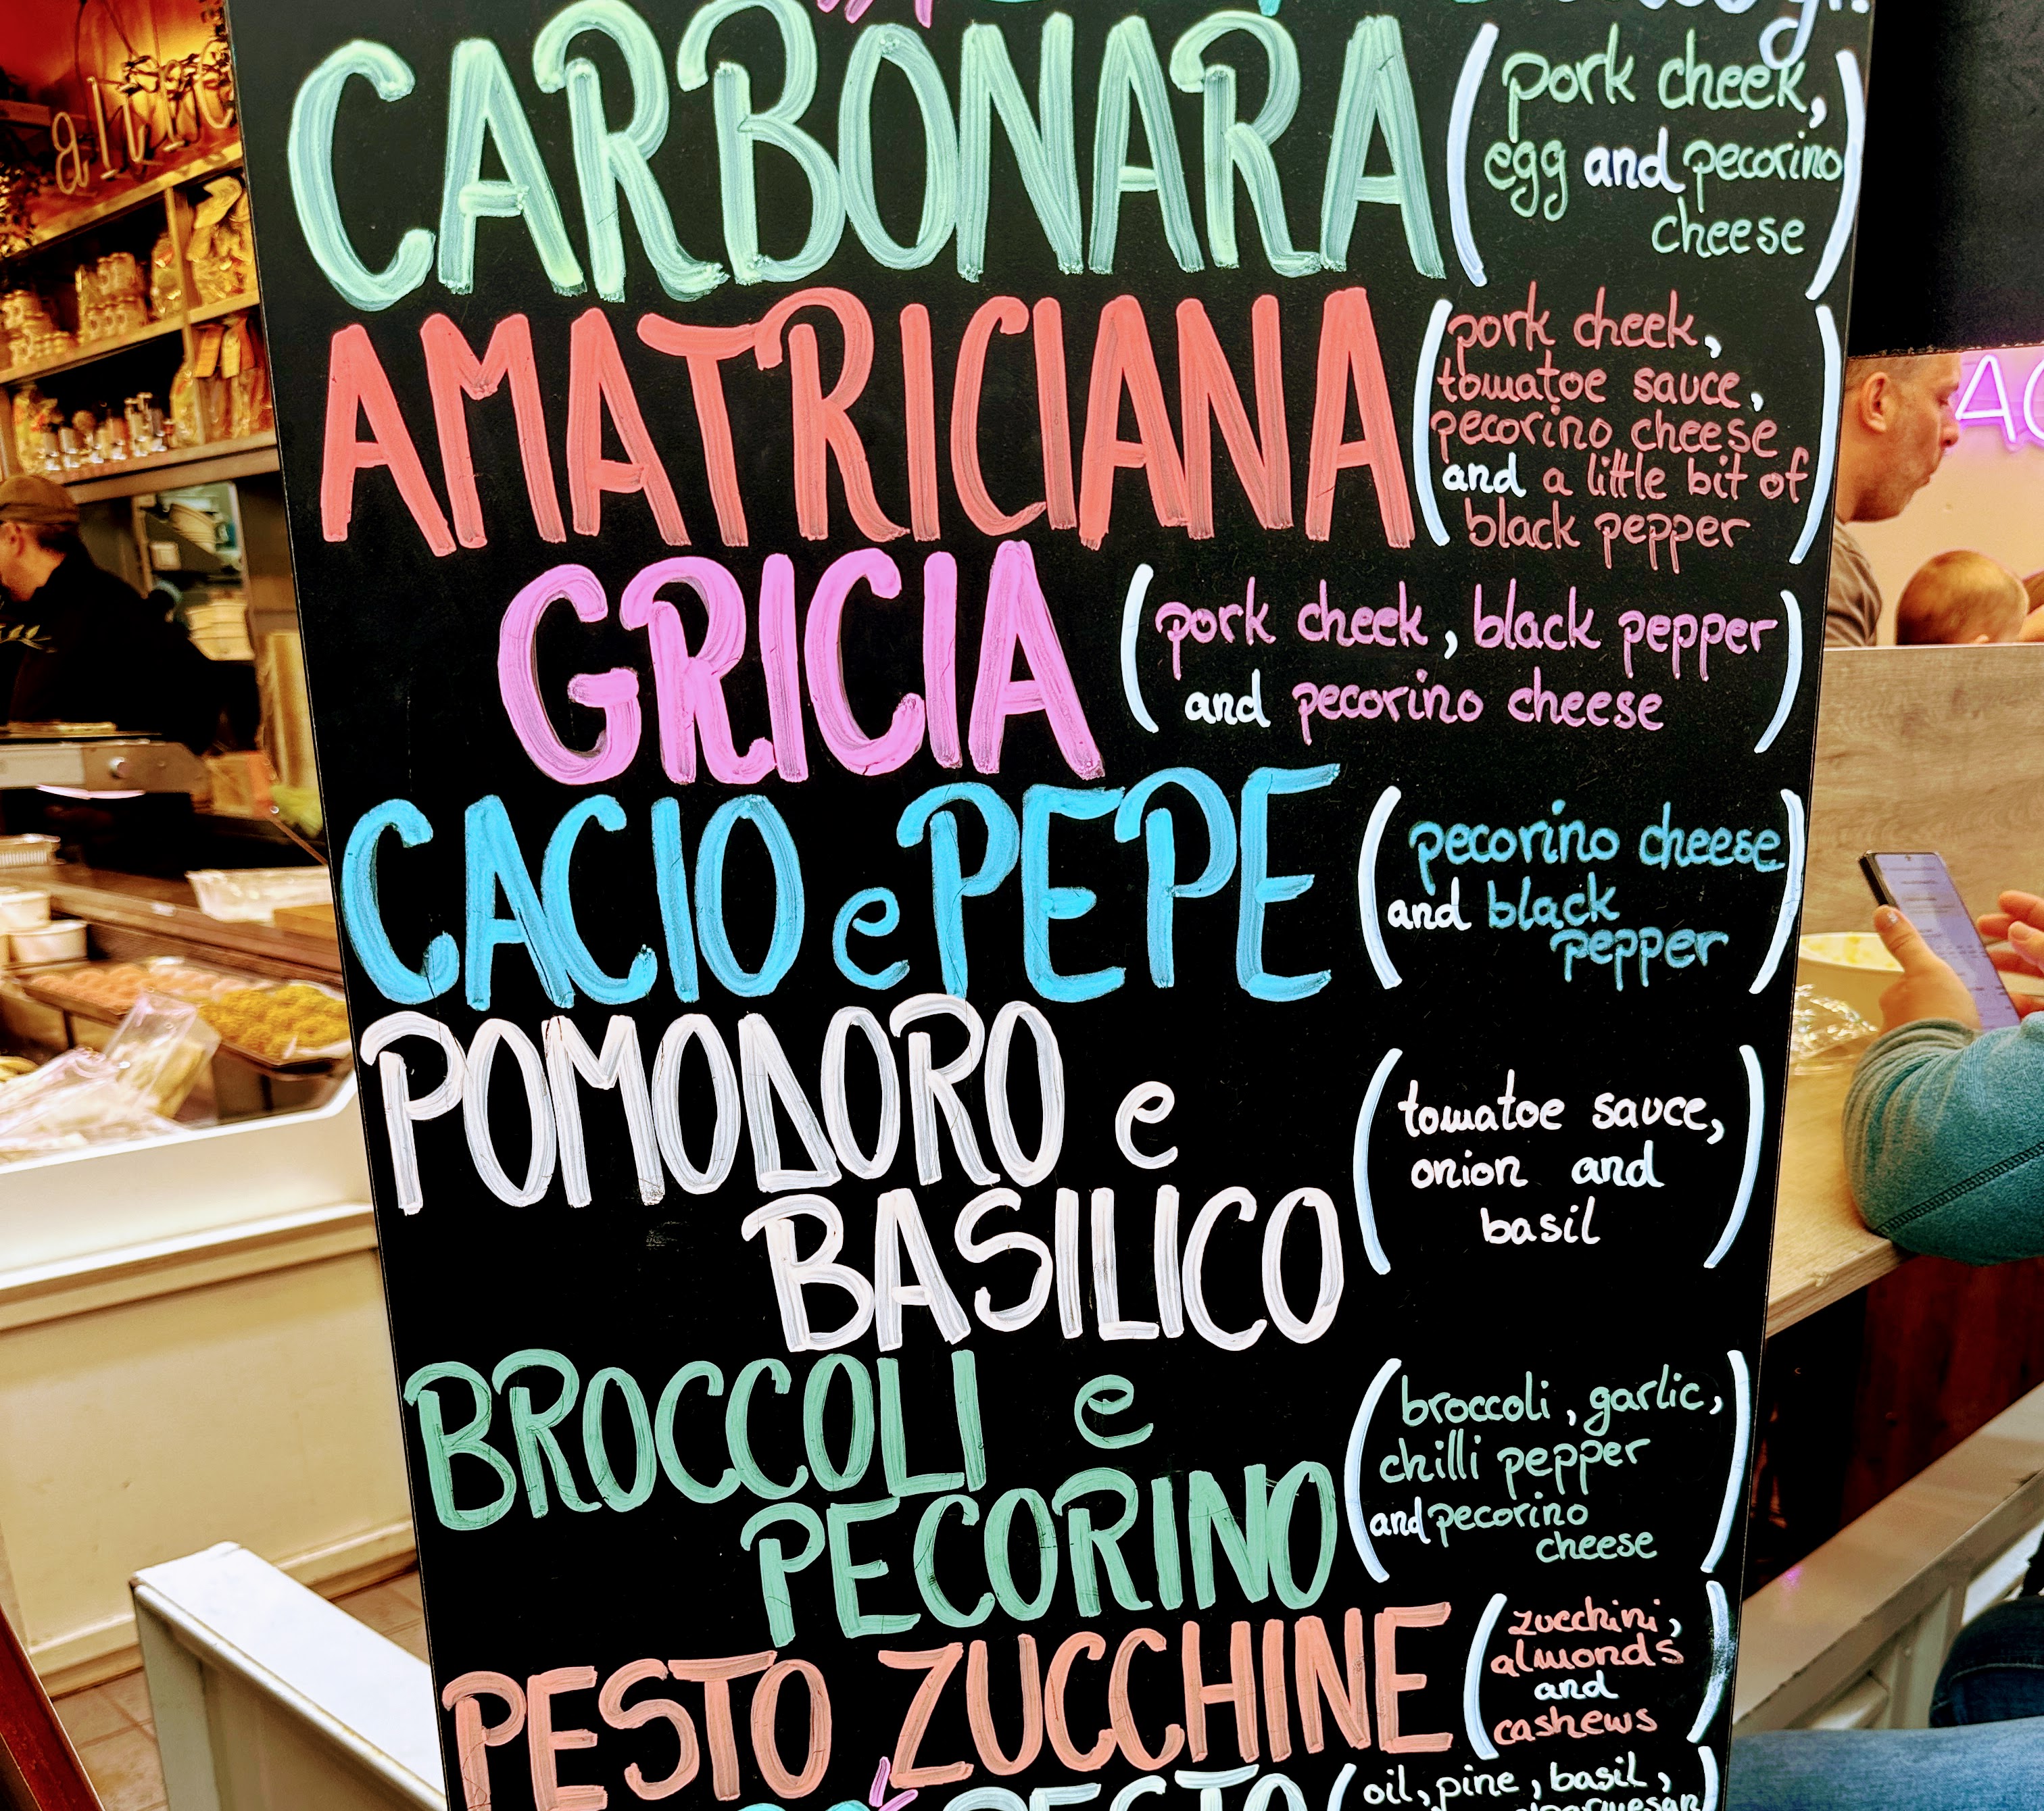 CARBONARA (pork cheek,
egg and pecorino
cheese)
AMATRICIANA (pork cheek,
tomatoe sauce,
pecorino cheese
and a little bit of
black pepper)
GRICIA (pork cheek, black pepper
and pecorino cheese)
CACIO e PEPE (pecorino cheese
and black
pepper)
POMODORO e
BASILICO (tomatoe sauce,
onion and
basil)
BROCCOLI e
PECORINO (broccoli, garlic,
chilli pepper
and pecorino
cheese)
PESTO ZUCCHINE (zucchini,
almonds
and
cashews)
PESTO (oil, pine, basil,
parmesan)